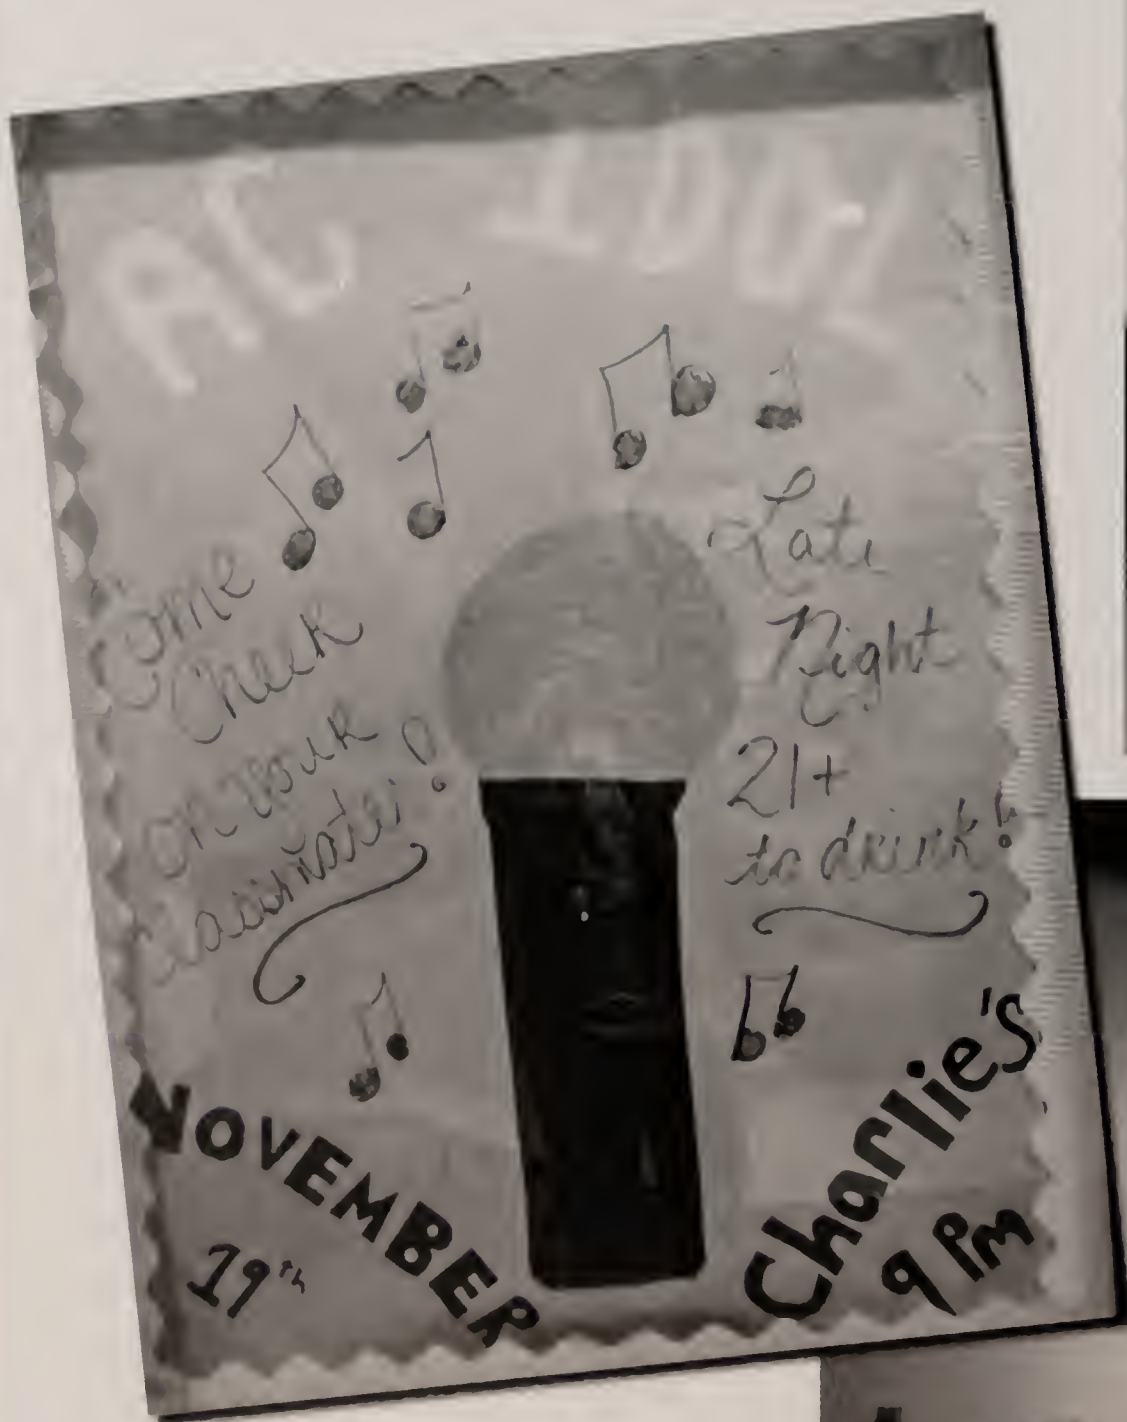 AC IDOL
Come
Check
on your
classmates!
Late
Night
21+
to drink!
NOVEMBER
19th
Charlie's
9 PM